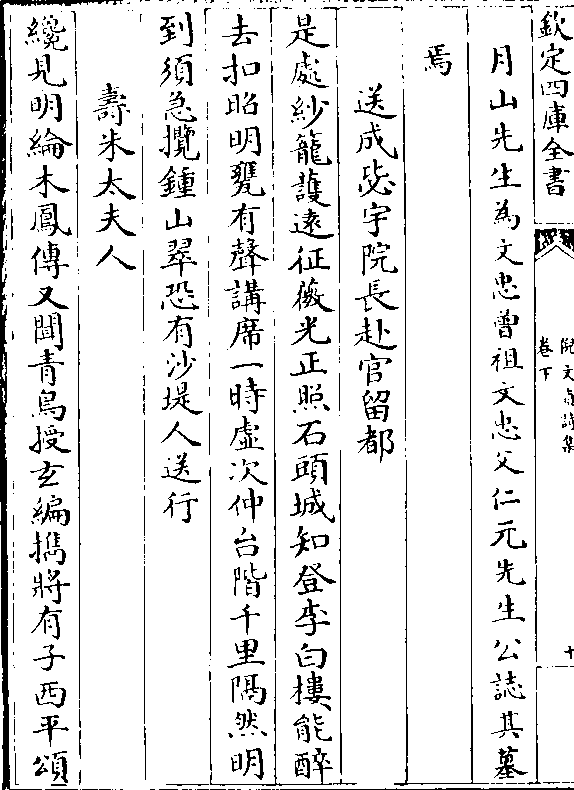 欽定四庫全書
倪文貞詩集
卷下
十
月山先生為文忠曾祖文忠父仁元先生公誌其墓
焉
送成毖宇院長赴官留都
是處紗籠護遠征薇光正照石頭城知登李白樓能醉
去扣昭明甕有聲講席一時虛次仲台階千里隔然明
到須急攬鍾山翠恐有沙堤人送行
壽米太夫人
纔見明綸木鳳傳又聞青鳥授玄編擕將有子西平頌